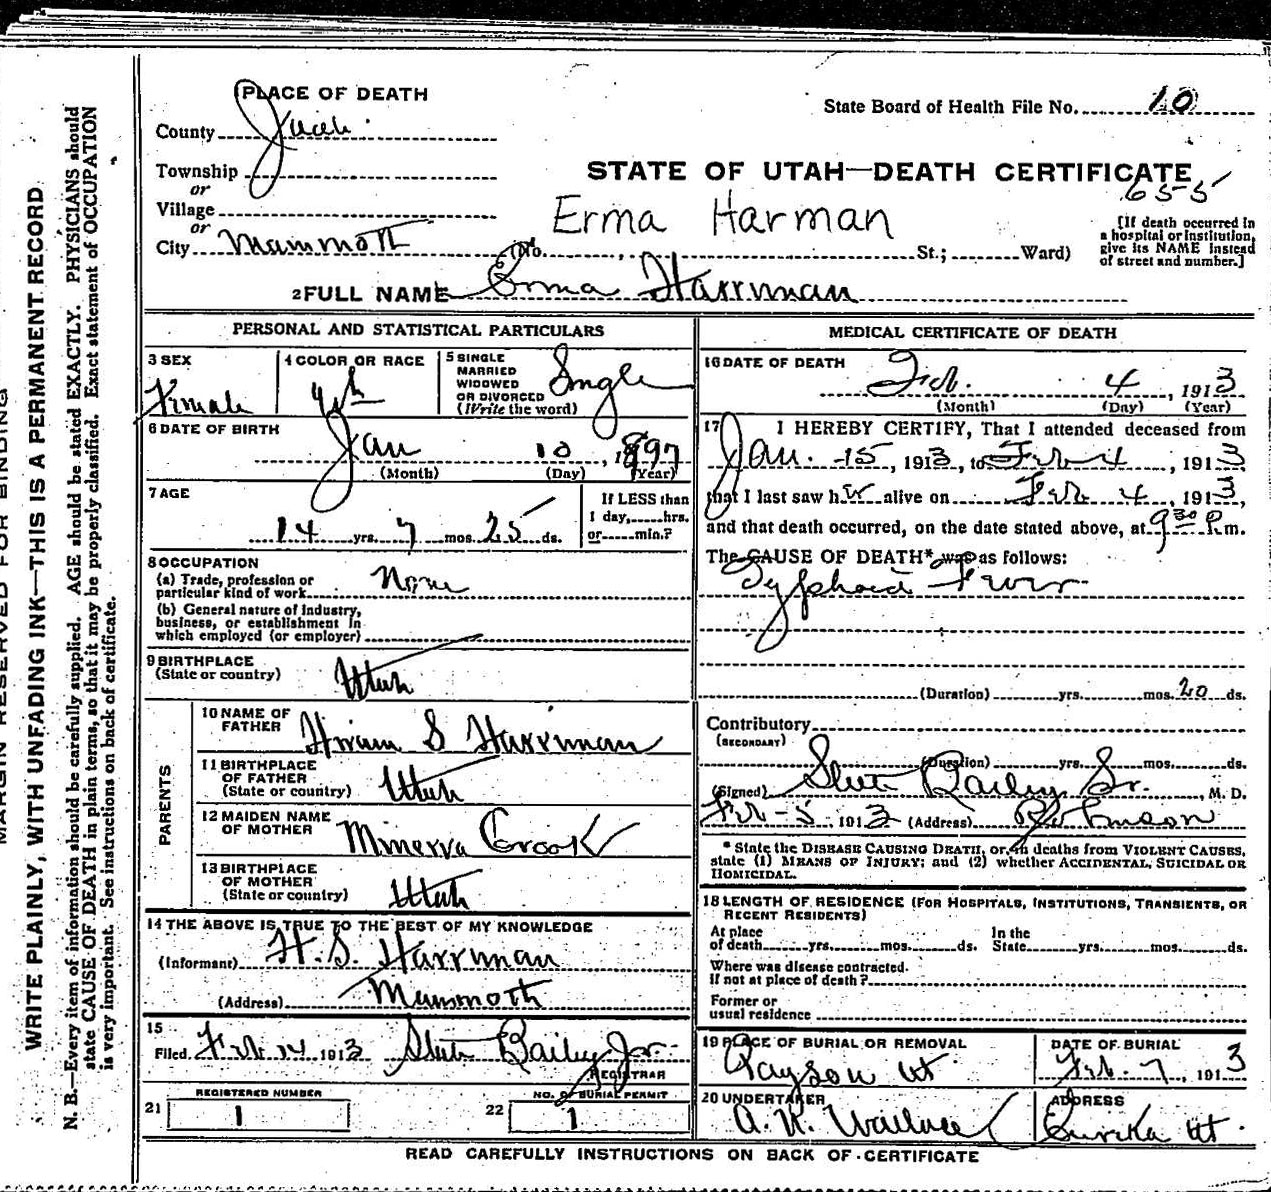 PLACE OF DEATH
State Board of Health File No. 10
County Juab
Township
or
STATE OF UTAH—DEATH CERTIFICATE
655
Village
or
Erma Harman
[If death occurred in
a hospital or institution,
give its NAME instead
of street and number.]
City Mammoth (No. St.; Ward)
2 FULL NAME Erma Harrman
PERSONAL AND STATISTICAL PARTICULARS
3 SEX
Female
4 COLOR OR RACE
5 SINGLE
MARRIED
WIDOWED
OR DIVORCED
(Write the word)
Single
6 DATE OF BIRTH
Jan 10, 1897
(Month) (Day) (Year)
7 AGE
14 yrs. 7 mos. 25 ds.
If LESS than
1 day, hrs.
or min.?
8 OCCUPATION
(a) Trade, profession or
particular kind of work None
(b) General nature of industry,
business, or establishment in
which employed (or employer)
9 BIRTHPLACE
(State or country) Utah
PARENTS
10 NAME OF
FATHER Hiram S Harrman
11 BIRTHPLACE
OF FATHER
(State or country) Utah
12 MAIDEN NAME
OF MOTHER Minerva Crook
13 BIRTHPLACE
OF MOTHER
(State or country) Utah
14 THE ABOVE IS TRUE TO THE BEST OF MY KNOWLEDGE
(Informant) H. S. Harrman
(Address) Mammoth
15
Filed Feb 14 1913 Bailey Jr.
REGISTRAR
REGISTERED NUMBER
21 1
NO. OF BURIAL PERMIT
22 1
MEDICAL CERTIFICATE OF DEATH
16 DATE OF DEATH
Feb. 4, 1913
(Month) (Day) (Year)
17 I HEREBY CERTIFY, That I attended deceased from
Jan. 15, 1913, to Feb 4, 1913
that I last saw her alive on Feb 4, 1913,
and that death occurred, on the date stated above, at 9 30 P.m.
The CAUSE OF DEATH* was as follows:
Typhoid Fever
(Duration) yrs. mos. 20 ds.
Contributory
(SECONDARY)
(Duration) yrs. mos. ds.
(Signed) Bailey Sr., M. D.
Feb - 5, 1913 (Address)
* State the DISEASE CAUSING DEATH, or, in deaths from VIOLENT CAUSES,
state (1) MEANS OF INJURY; and (2) whether ACCIDENTAL, SUICIDAL OR
HOMICIDAL.
18 LENGTH OF RESIDENCE (FOR HOSPITALS, INSTITUTIONS, TRANSIENTS, OR
RECENT RESIDENTS)
At place In the
of death yrs. mos. ds. State yrs. mos. ds.
Where was disease contracted.
if not at place of death?
Former or
usual residence
19 PLACE OF BURIAL OR REMOVAL
Payson Ut
DATE OF BURIAL
Feb. 7, 1913
20 UNDERTAKER
A. K. Wallace
ADDRESS
Eureka Ut.
READ CAREFULLY INSTRUCTIONS ON BACK OF CERTIFICATE
MARGIN RESERVED FOR BINDING
WRITE PLAINLY, WITH UNFADING INK—THIS IS A PERMANENT RECORD
N. B.—Every item of information should be carefully supplied. AGE should be stated EXACTLY. PHYSICIANS should
state CAUSE OF DEATH in plain terms, so that it may be properly classified. Exact statement of OCCUPATION
is very important. See instructions on back of certificate.